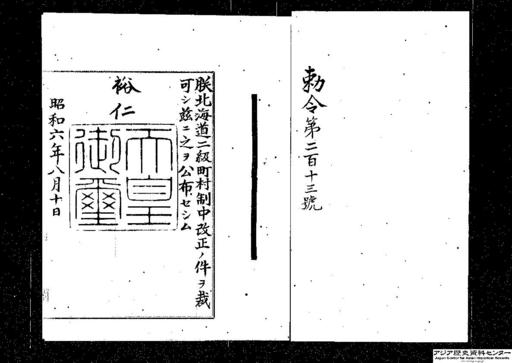 朕北海道二級町村制中改正ノ件ヲ裁
可シ玆ニ之ヲ公布セシム
裕仁
天皇
御璽
昭和六年八月十日
勅令第二百十三號
アジア歴史資料センター
Japan Center for Asian Historical Records